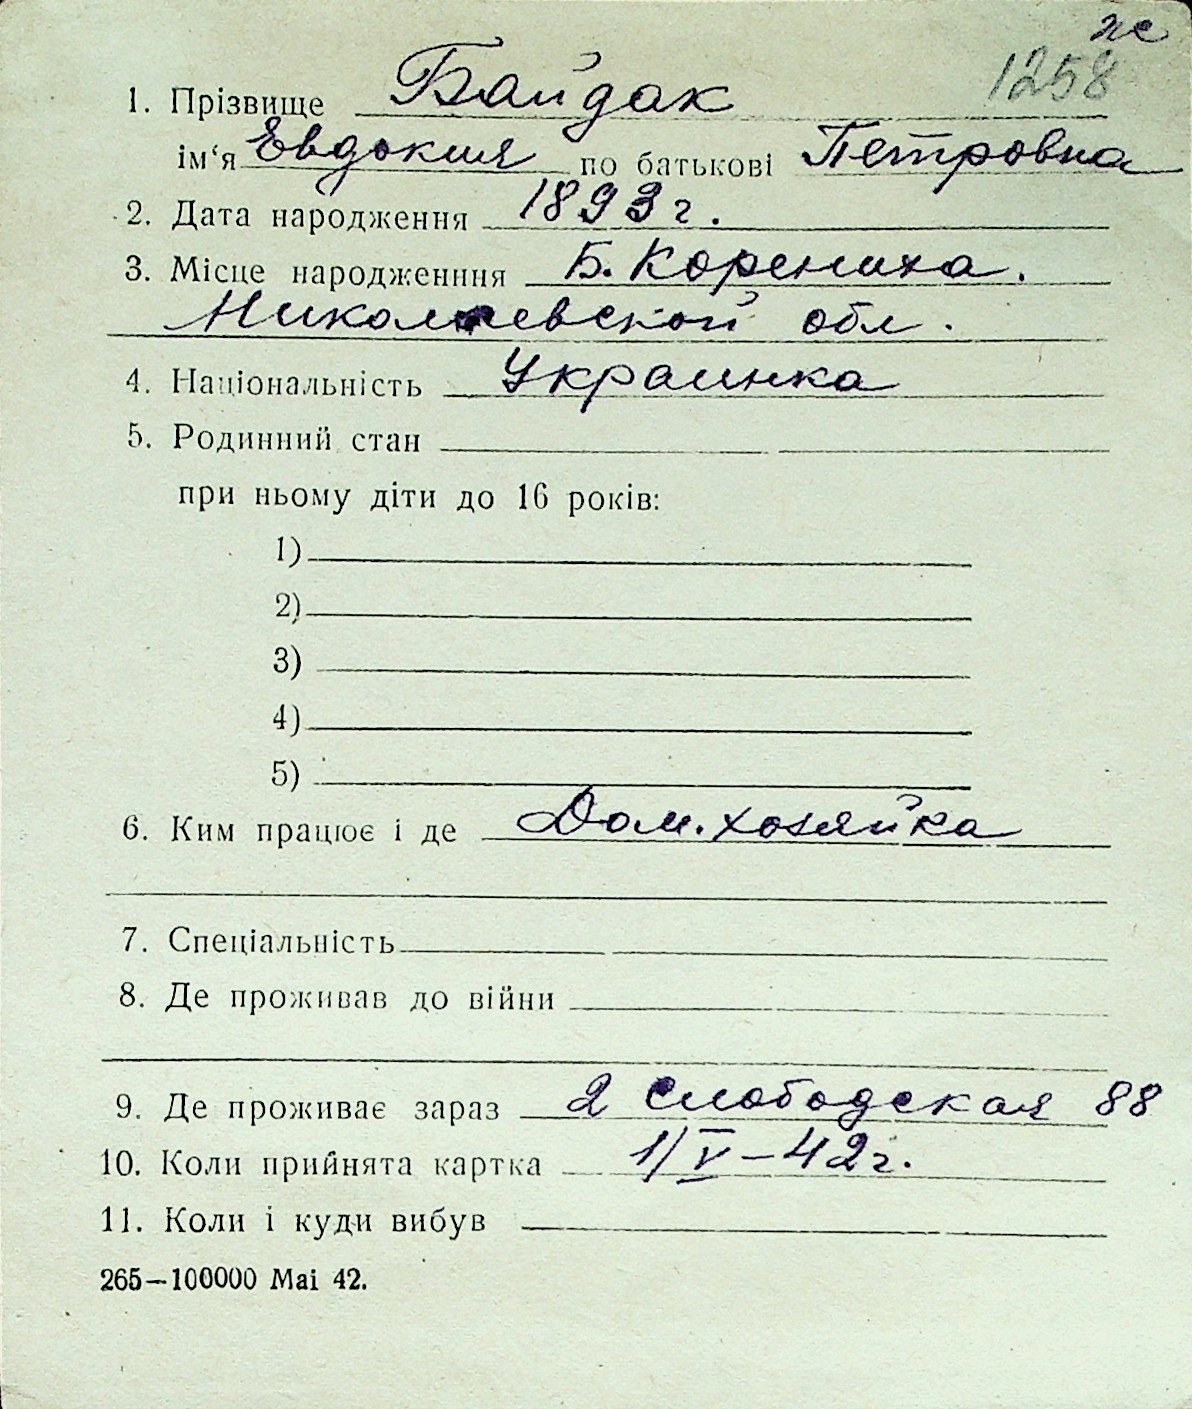 ж
1258
1. Прізвище Байдак
ім‘я Евдокия по батькові Петровна
2. Дата народження 1893 г.
3. Місце народженння Б. Корениха.
Николаевской обл.
4. Національність Украинка
5. Родинний стан
при ньому діти до 16 років:
1)
2)
3)
4)
5)
6. Ким працює і де Дом. хозяйка
7. Спеціальність
8. Де проживав до війни
9. Де проживає зараз 2 Слободская 88
10. Коли прийнята картка 1/V – 42 г.
11. Коли і куди вибув
265—100000 Mai 42.